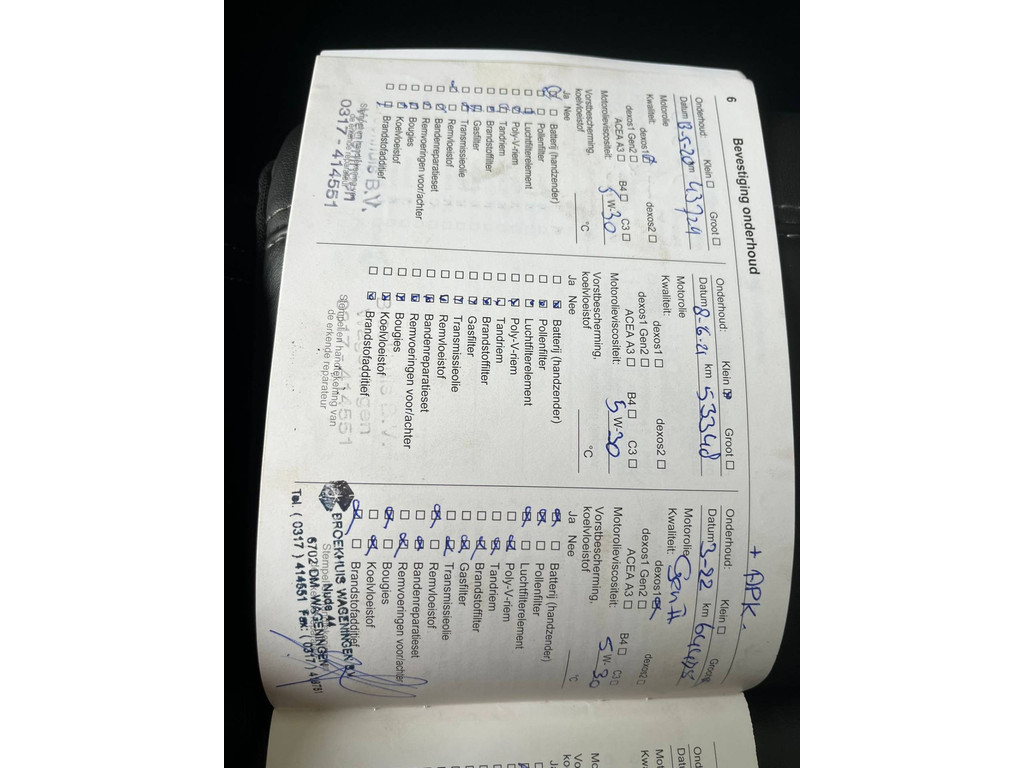 6
Bevestiging onderhoud
+ APK.
Onderhoud: Klein ☐ Groot ☐
Datum km 43724
Motorolie
Kwaliteit: dexos1 dexos2 ☐
dexos1 Gen2 ☐
ACEA A3 ☐ B4 ☐ C3 ☐
Motorolieviscositeit: 5 W-30
Vorstbescherming,
koelvloeistof °C
Ja Nee
Batterij (handzender)
Pollenfilter
Luchtfilterelement
Poly-V-riem
Tandriem
Brandstoffilter
Gasfilter
Transmissieolie
Remvloeistof
Bandenreparatieset
Remvoeringen voor/achter
Bougies
Koelvloeistof
Brandstofadditief
B.V.
Wageningen
0317-414551
Onderhoud: Klein ☒ Groot ☐
Datum 8-6-21 km 53348
Motorolie
Kwaliteit: dexos1 ☐ dexos2 ☐
dexos1 Gen2 ☐
ACEA A3 ☐ B4 ☐ C3 ☐
Motorolieviscositeit: 5 W-30
Vorstbescherming,
koelvloeistof °C
Ja Nee
Batterij (handzender)
Pollenfilter
Luchtfilterelement
Poly-V-riem
Tandriem
Brandstoffilter
Gasfilter
Transmissieolie
Remvloeistof
Bandenreparatieset
Remvoeringen voor/achter
Bougies
Koelvloeistof
Brandstofadditief
B.V.
Wageningen
0317-414551
Stempel en handtekening van
de erkende reparateur
Onderhoud: Klein ☐ Groot
Datum 3-22 km
Motorolie
Kwaliteit: dexos1 dexos2 ☐
dexos1 Gen2 ☐
ACEA A3 ☐ B4 ☐ C3 ☐
Motorolieviscositeit: 5 W-30
Vorstbescherming,
koelvloeistof °C
Ja Nee
Batterij (handzender)
Pollenfilter
Luchtfilterelement
Poly-V-riem
Tandriem
Brandstoffilter
Gasfilter
Transmissieolie
Remvloeistof
Bandenreparatieset
Remvoeringen voor/achter
Bougies
Koelvloeistof
Brandstofadditief
BROEKHUIS WAGENINGEN BV
Nude 44
6702 DM WAGENINGEN
Tel. (0317) 414551 Fax: (0317)